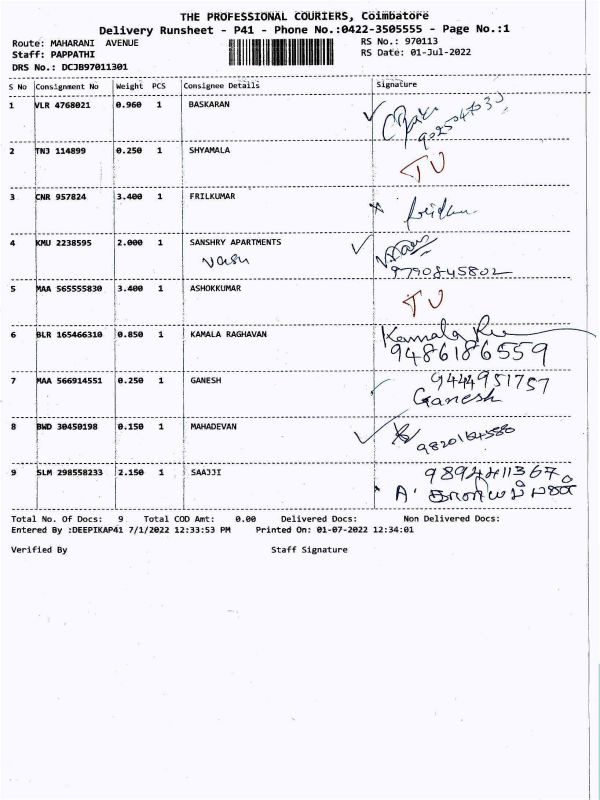 THE PROFESSIONAL COURIERS, Coimbatore
Delivery Runsheet - P41 - Phone No.:0422-3505555 - Page No.:1
Route: MAHARANI AVENUE RS No.: 970113
Staff: PAPPATHI RS Date: 01-Jul-2022
DRS No.: DCJB97011301
S No Consignment No Weight PCS Consignee Details Signature
1 VLR 4768021 0.960 1 BASKARAN
2 TNJ 114899 0.250 1 SHYAMALA TU
3 CNR 957824 3.400 1 FRILKUMAR
4 KMU 2238595 2.000 1 SANSHRY APARTMENTS
9790845802
5 MAA 565555830 3.400 1 ASHOKKUMAR TU
6 BLR 165466310 0.850 1 KAMALA RAGHAVAN Kamala
9486186559
7 MAA 566914551 0.250 1 GANESH 9444951757
Ganesh
8 BWD 30450198 0.150 1 MAHADEVAN
9 SLM 298558233 2.150 1 SAAJJI 9894411367
A.
Total No. Of Docs: 9 Total COD Amt: 0.00 Delivered Docs: Non Delivered Docs:
Entered By :DEEPIKAP41 7/1/2022 12:33:53 PM Printed On: 01-07-2022 12:34:01
Verified By Staff Signature